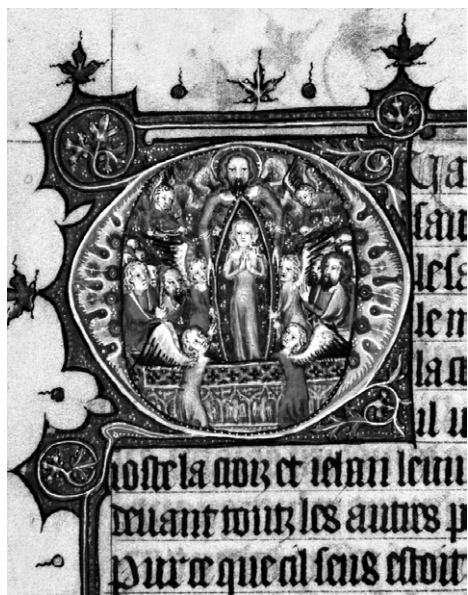 sau
lesa
le m
il
ioste la croiz et iehan
deuant toutz les autres p
pur ce que cil seus estoit